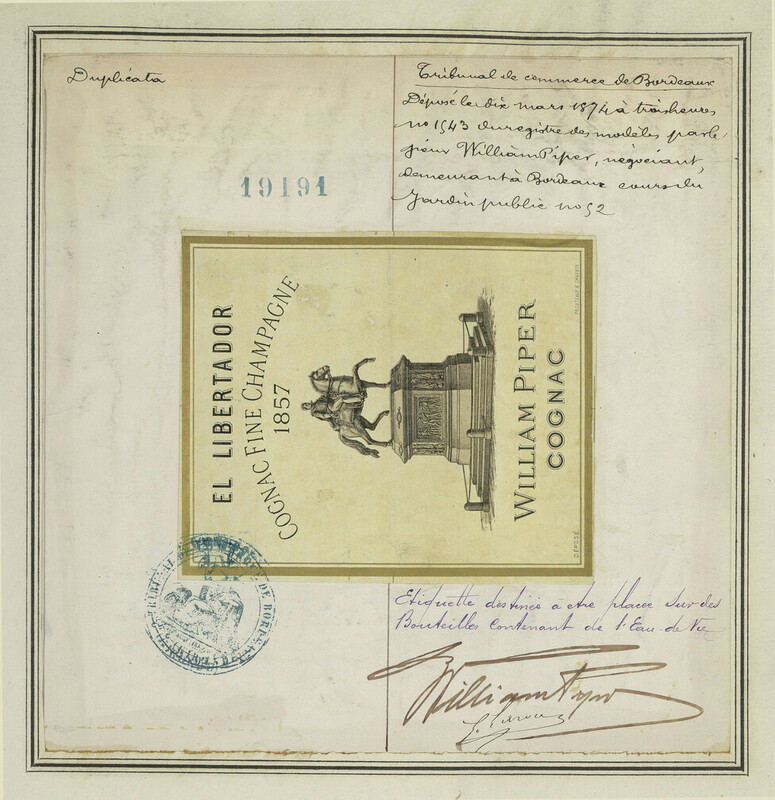 Duplicata
Tribunal de commerce de Bordeaux
Déposé le dix mars 1874 à trois heures
no 1543 du registre des modèles par le
sieur William Piper, négociant,
demeurant à Bordeaux cours du
Jardin public no 52
19191
EL LIBERTADOR
COGNAC FINE CHAMPAGNE
1857
WILLIAM PIPER
COGNAC
DÉPOSÉ
TRIBUNAL DE COMMERCE DE BORDEAUX
Etiquette destinée à etre placée sur des
Bouteilles contenant de l'Eau-de-Vie
William Piper